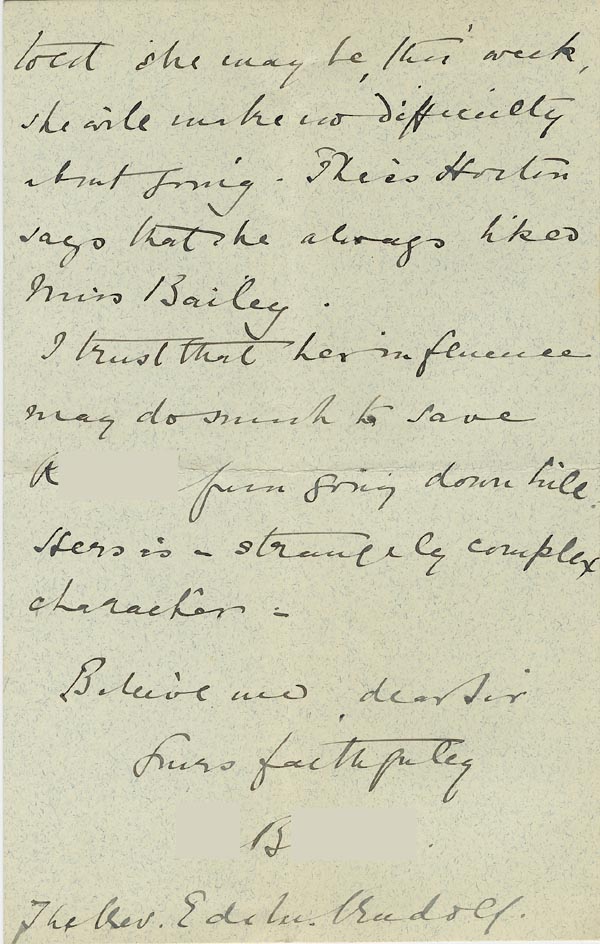 told she may be, this week,
she will make no difficulty
about going. Miss Horton
says that she always liked
Miss Bailey.
I trust that her influence
may do much to save
R from going down hill.
Hers is a strangely complex
character -
Believe me, dear Sir
Yours faithfully
B
The Rev. Edw. Rudolf.